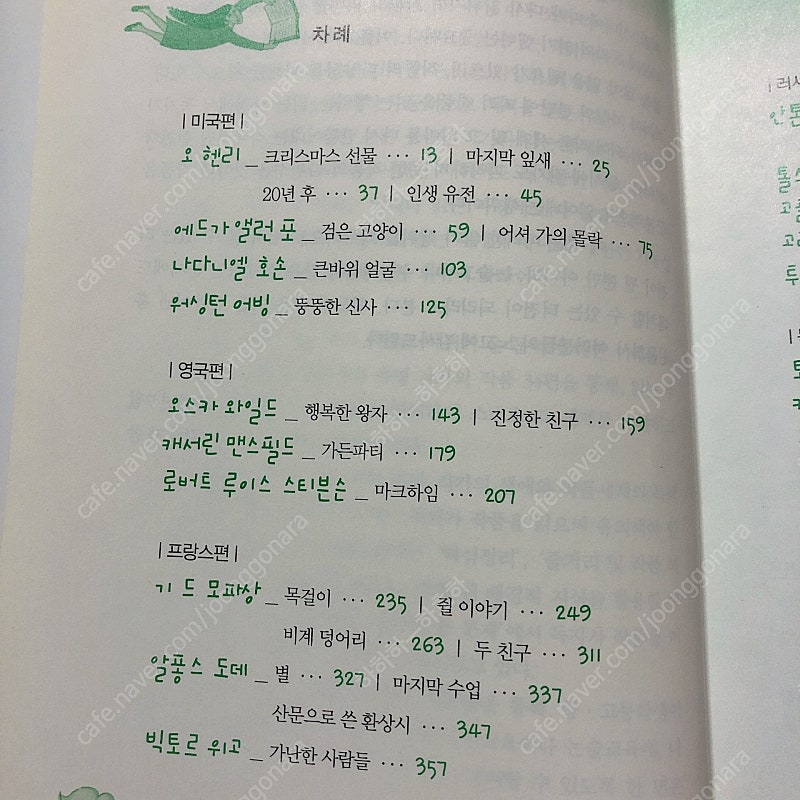 차례
| 미국편 |
오 헨리 _ 크리스마스 선물 ··· 13 | 마지막 잎새 ··· 25
20년 후 ··· 37 | 인생 유전 ··· 45
에드가 앨런 포 _ 검은 고양이 ··· 59 | 어셔 가의 몰락 ··· 75
나다니엘 호손 _ 큰바위 얼굴 ··· 103
워싱턴 어빙 _ 뚱뚱한 신사 ··· 125
| 영국편 |
오스카 와일드 _ 행복한 왕자 ··· 143 | 진정한 친구 ··· 159
캐서린 맨스필드 _ 가든파티 ··· 179
로버트 루이스 스티븐슨 _ 마크하임 ··· 207
| 프랑스편 |
기 드 모파상 _ 목걸이 ··· 235 | 쥘 이야기 ··· 249
비계 덩어리 ··· 263 | 두 친구 ··· 311
알퐁스 도데 _ 별 ··· 327 | 마지막 수업 ··· 337
산문으로 쓴 환상시 ··· 347
빅토르 위고 _ 가난한 사람들 ··· 357
cafe.naver.com/joonggonara